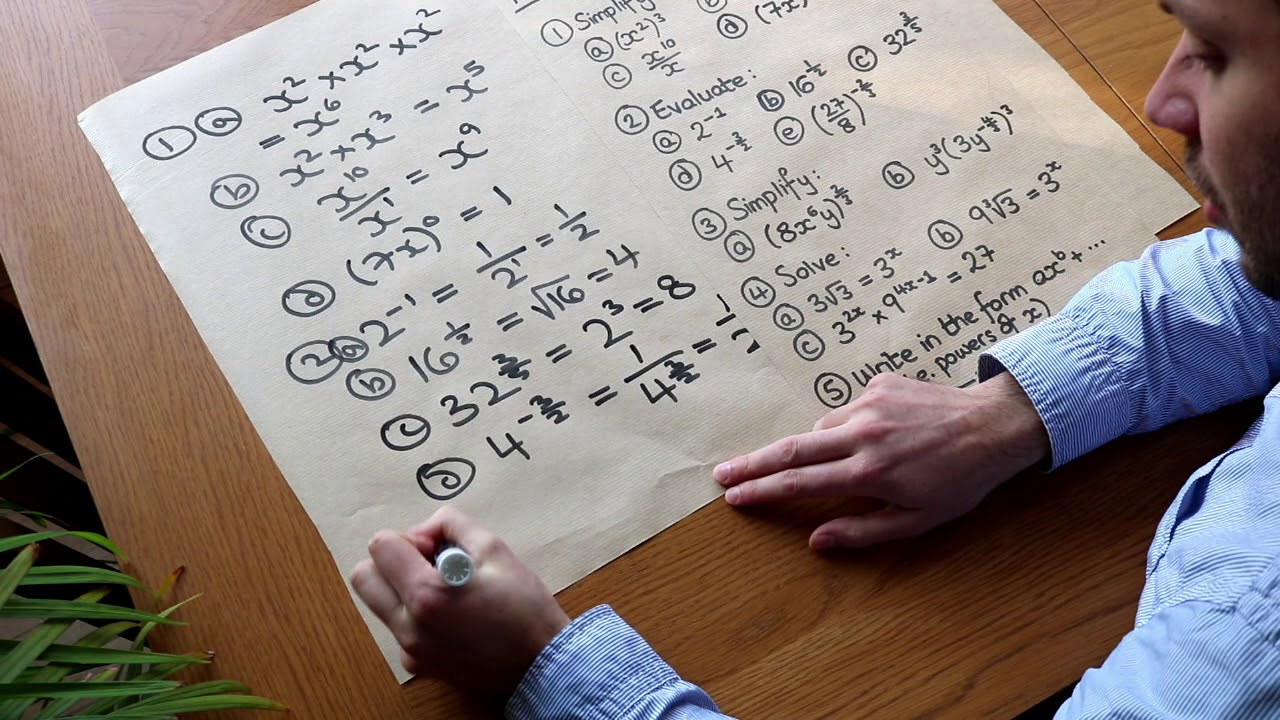 ① ⓐ x² × x² × x²
= x⁶
ⓑ x² × x³ = x⁵
ⓒ x¹⁰/x¹ = x⁹
ⓓ (7x)⁰ = 1
② ⓐ 2⁻¹ = 1/2¹ = 1/2
ⓑ 16^(1/2) = √16 = 4
ⓒ 32^(3/5) = 2³ = 8
ⓓ 4^(-3/2) = 1/4^(3/2) = 1/
① Simplify
ⓐ (x²)³
ⓒ x¹⁰/x ⓓ (7x)
② Evaluate:
ⓐ 2⁻¹ ⓑ 16^(1/2) ⓒ 32^(3/5)
ⓓ 4^(-3/2) ⓔ (27/8)^(-2/3)
③ Simplify:
ⓐ (8x⁶y)^(2/3) ⓑ y³(3y^(-4/3))³
④ Solve:
ⓐ 3√3 = 3ˣ ⓑ 9∛3 = 3ˣ
ⓒ 3^(2x) × 9^(4x-1) = 27
⑤ Write in the form axᵇ + ...
e. powers of x)